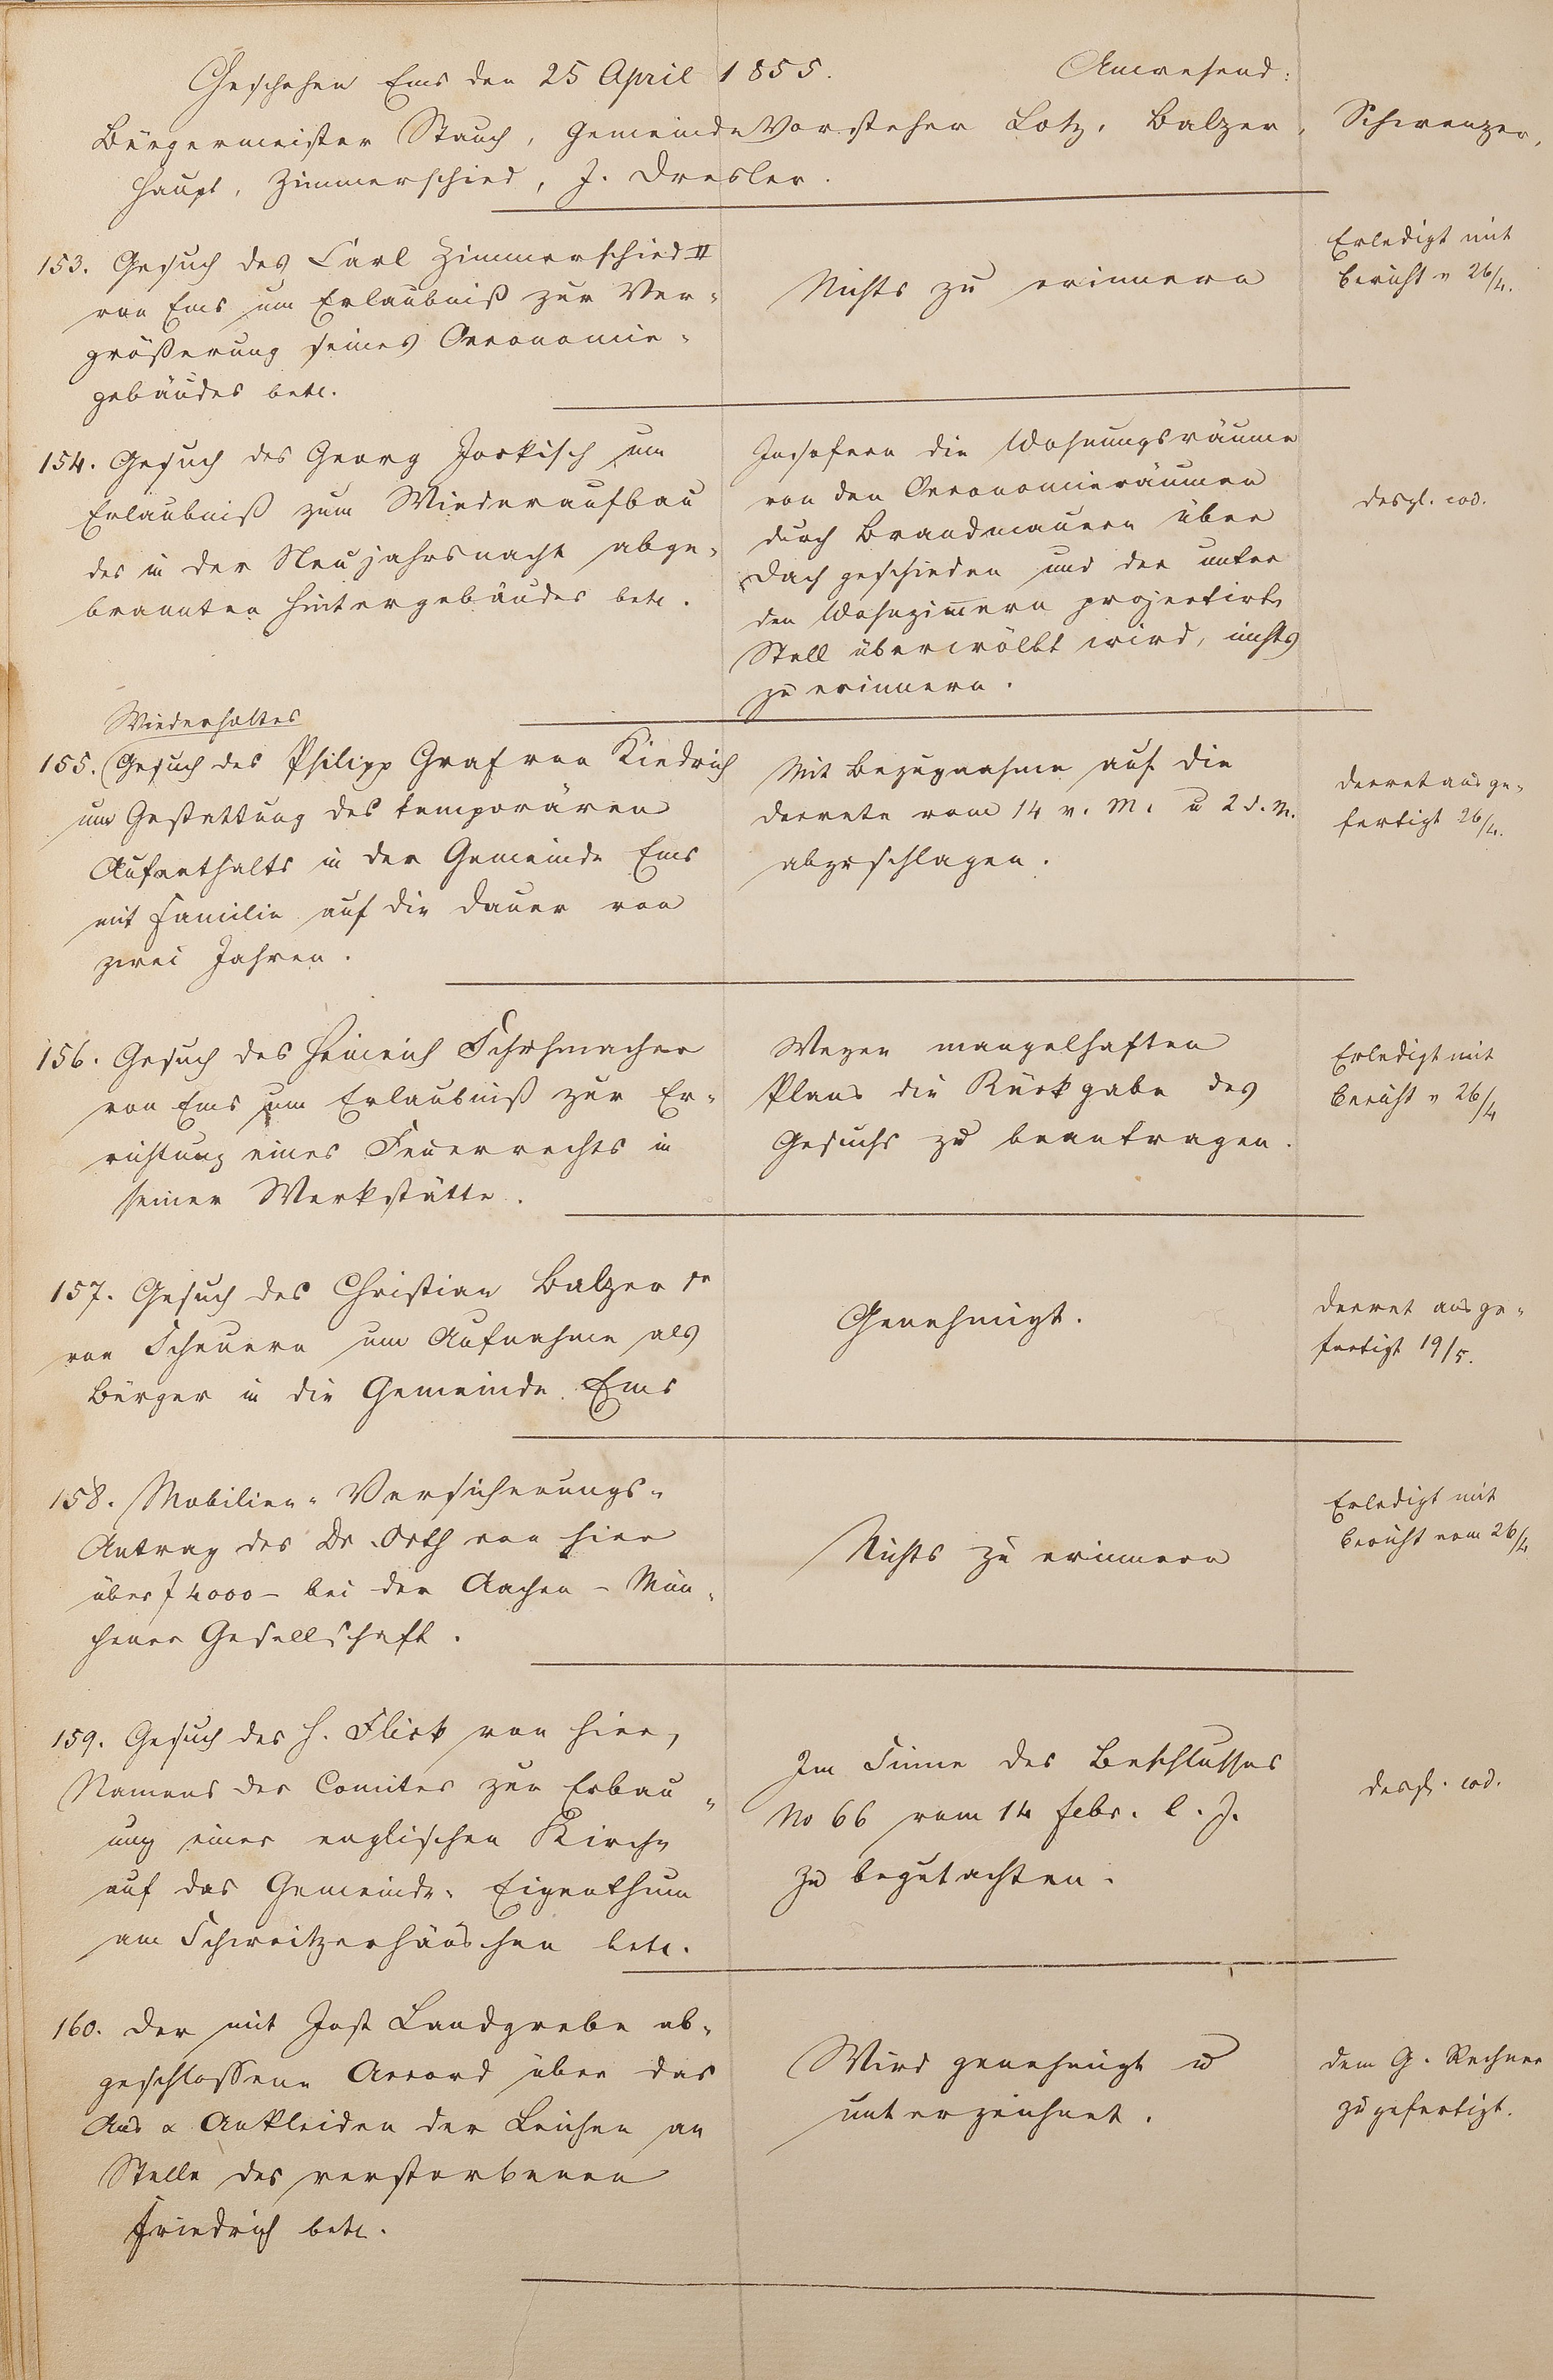 Geschehen Ems den 25 April 1855. Anwesend:
Bürgermeister Stauch, Gemeindevorsteher Lotz, Balzer, Schwenzer,
Haupt, Zimmerschied, J. Dresler.
153. Gesuch des Carl Zimmerschied II
von Ems um Erlaubniß zur Ver-
größerung seines Oeconomie-
gebäudes betr.
Nichts zu erinnern
Erledigt mit
Bericht v 26/4.
154. Gesuch des Georg Jockisch um
Erlaubniß zum Wiederaufbau
des in der Neujahrsnacht abge-
brannten Hintergebäudes betr.
Insofern die Wohnungsräume
von den Oeconomieräumen
durch Brandmauern über
Dach geschieden und der unter
den Wohnzimern projectirte
Stall überwölbt wird, nichts
zu erinnern.
desgl. eod.
Wiederholtes
155. Gesuch des Philipp Graf von Kiedrich
um Gestattung des temporären
Aufenthalts in der Gemeinde Ems
mit Familie auf die Dauer von
zwei Jahren.
Mit Bezugnahme auf die
Decrete vom 14 v. M. u 2 d. M.
abzuschlagen.
Decret ausge-
fertigt 26/4.
156. Gesuch des Heinrich Schuhmacher
von Ems um Erlaubniß zur Er-
richtung eines Feuerrechts in
seiner Werkstätte.
Wegen mangelhaften
Plans die Rückgabe des
Gesuchs zu beantragen.
Erledigt mit
Bericht v 26/4
157. Gesuch des Christian Balzer
von Scheuern um Aufnahme als
Bürger in die Gemeinde Ems
Genehmigt.
Decret ausge-
fertigt 19/5.
158. Mobilien-Versicherungs-
Antrag des Dr. Orth von hier
über f 4000 – bei der Aachen – Mün-
chener Gesellschaft.
Nichts zu erinnern
Erledigt mit
Bericht vom 26/4
159. Gesuch des H. Flick von hier,
Namens des Comites zur Erbau-
ung einer englischen Kirche
auf das Gemeinde-Eigenthum
am Schweitzerhäuschen betr.
Im Sinne des Beschlusses
No 66 vom 14 Febr. l. J.
zu begutachten.
desgl. eod.
160. Der mit Jost Landgrebe ab-
geschlossene Accord über das
Aus & Ankleiden der Leichen an
Stelle des verstorbenen
Friedrich betr.
Wird genehmigt u
unterzeichnet.
Dem G. Rechner
zugefertigt.